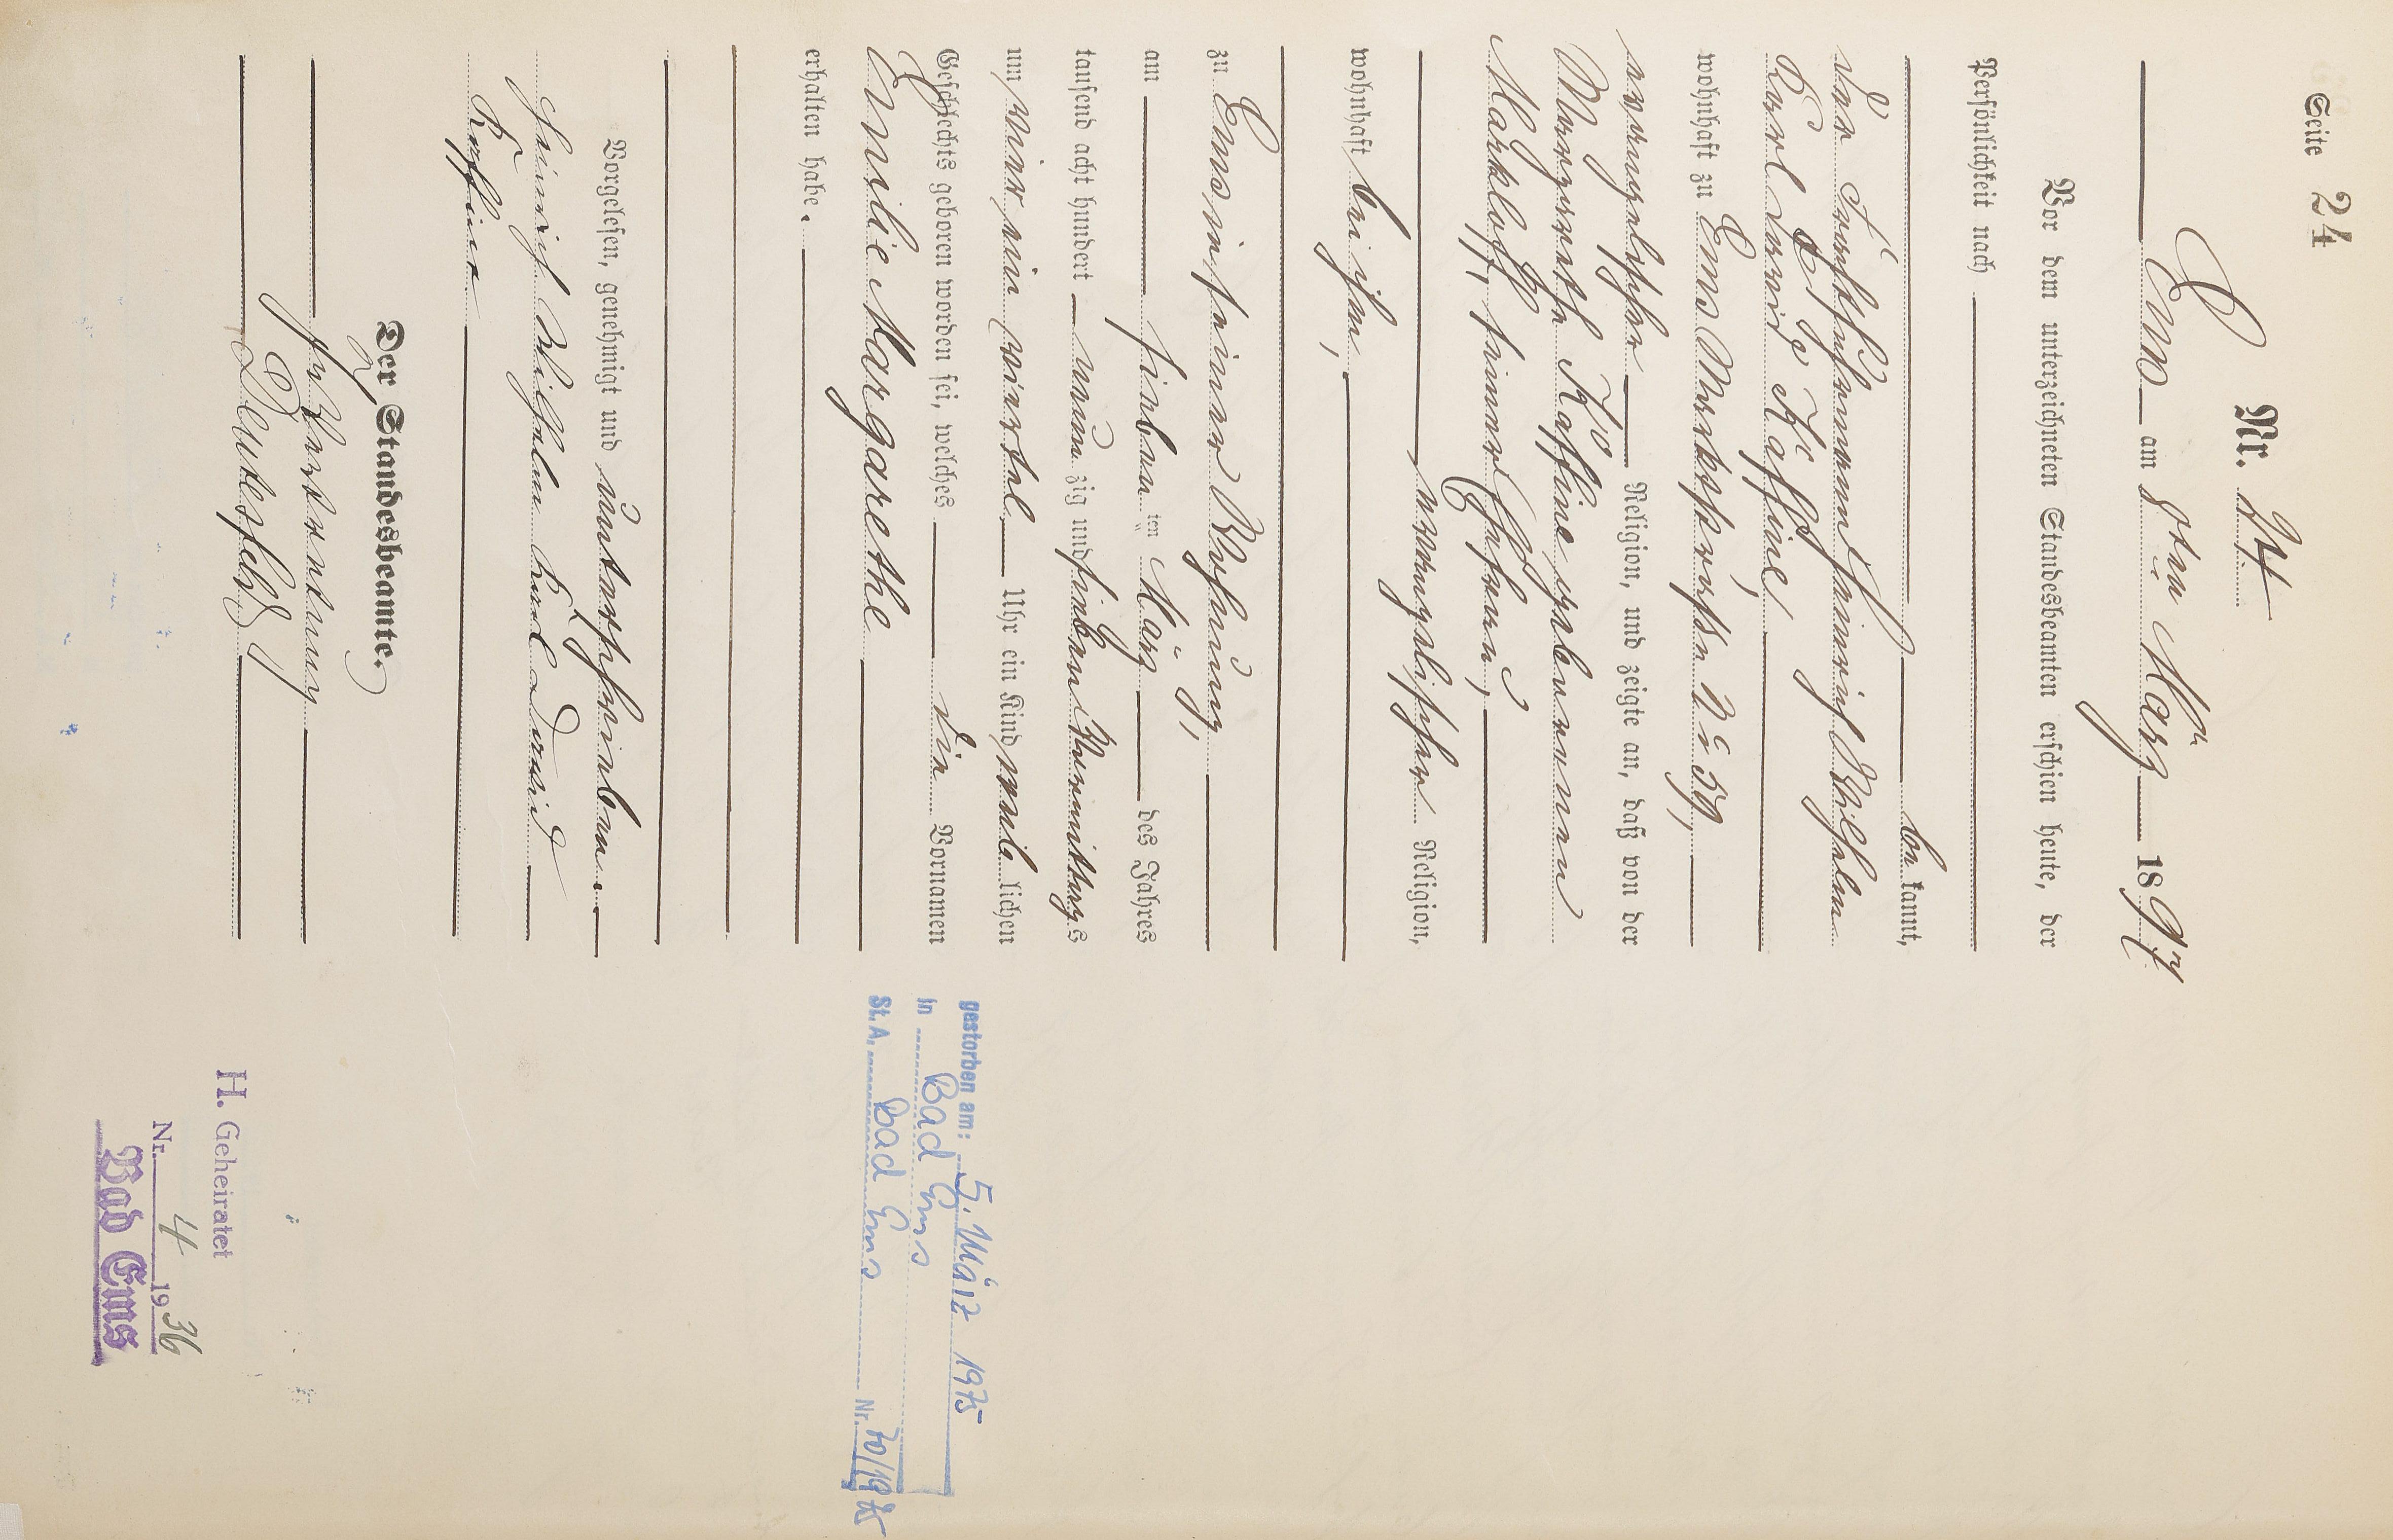 Seite 24
Nr. 24
Ems am 8ten März 1897
Vor dem unterzeichneten Standesbeamten erschien heute, der
Persönlichkeit nach
be kannt,
der Heinrich Wilhelm
Karl David Kaffine,
wohnhaft zu Ems Marktstraße No 59,
evangelischer Religion, und zeigte an, daß von der
Margarethe Kaffine geborenen
Markloff, seiner Ehefrau,
evangelischer Religion,
wohnhaft bei ihm,
zu Ems in seiner Wohnung,
am sieben ten März des Jahres
tausend acht hundert neun zig und sieben Vormittags
um vier ein viertel Uhr ein Kind weib lichen
Geschlechts geboren worden sei, welches die Vornamen
Emilie Margarethe
erhalten habe.
Vorgelesen, genehmigt und unterschrieben.
Heinrich Wilhelm Karl David
Kaffine
Der Standesbeamte.
In Vertretung
gestorben am: 5. März 1975
in Bad Ems
St. A. Bad Ems Nr. 70/1975
H. Geheiratet
Nr. 4 1936
Bad Ems